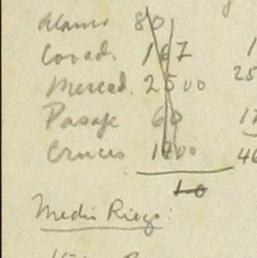 Alamos 80
Covad. 167 1
Mercad. 2500 25
Pasaje 60 17
Cruces 1700 46
10
Medio Riego: